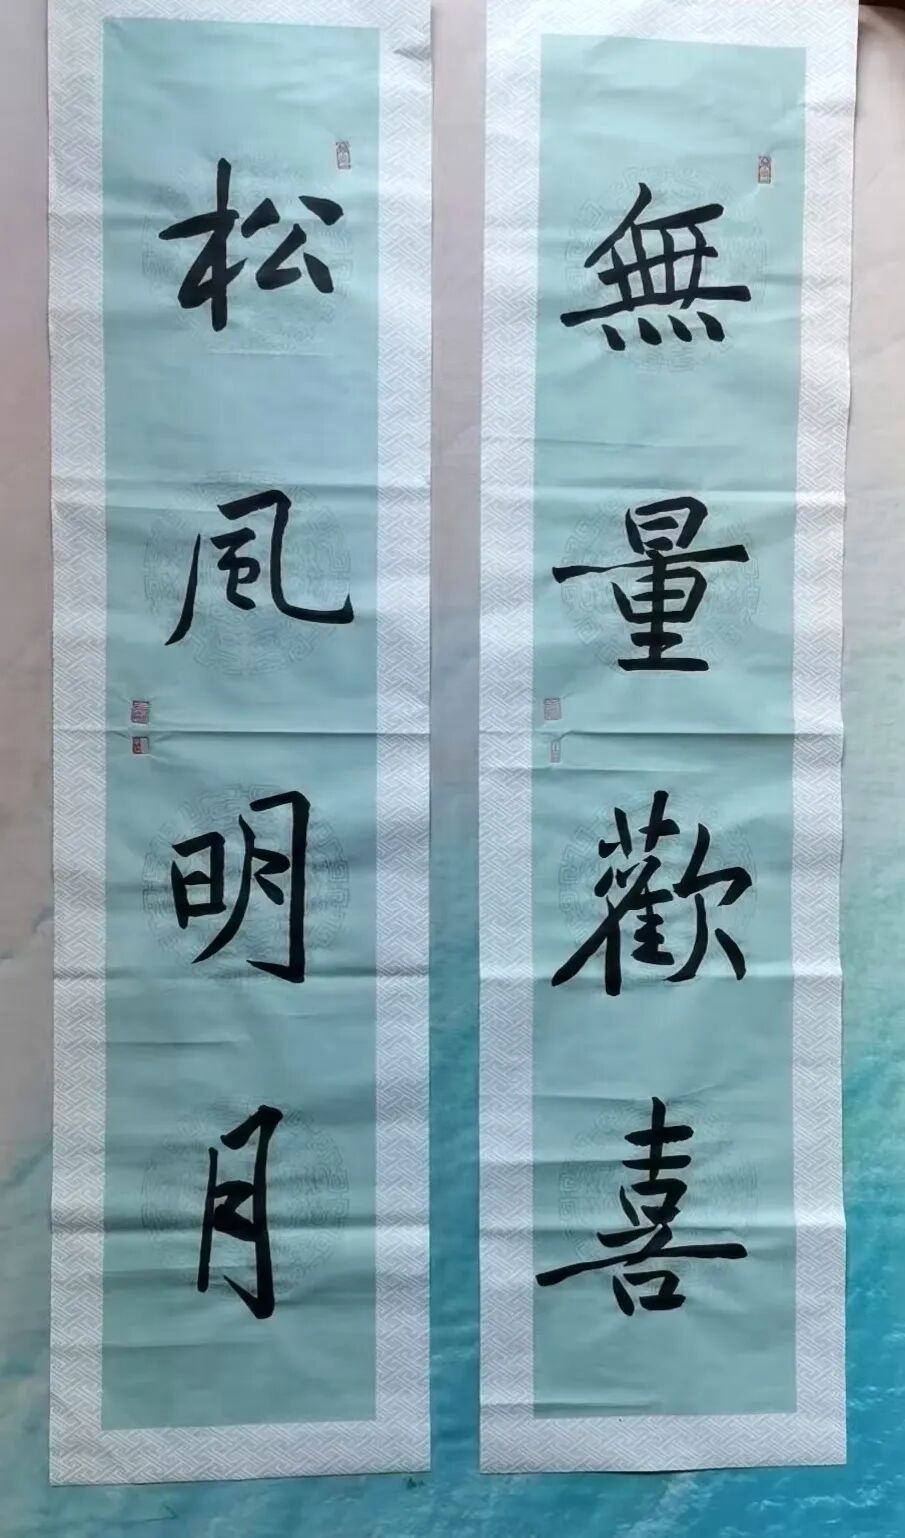 無量歡喜
松風明月